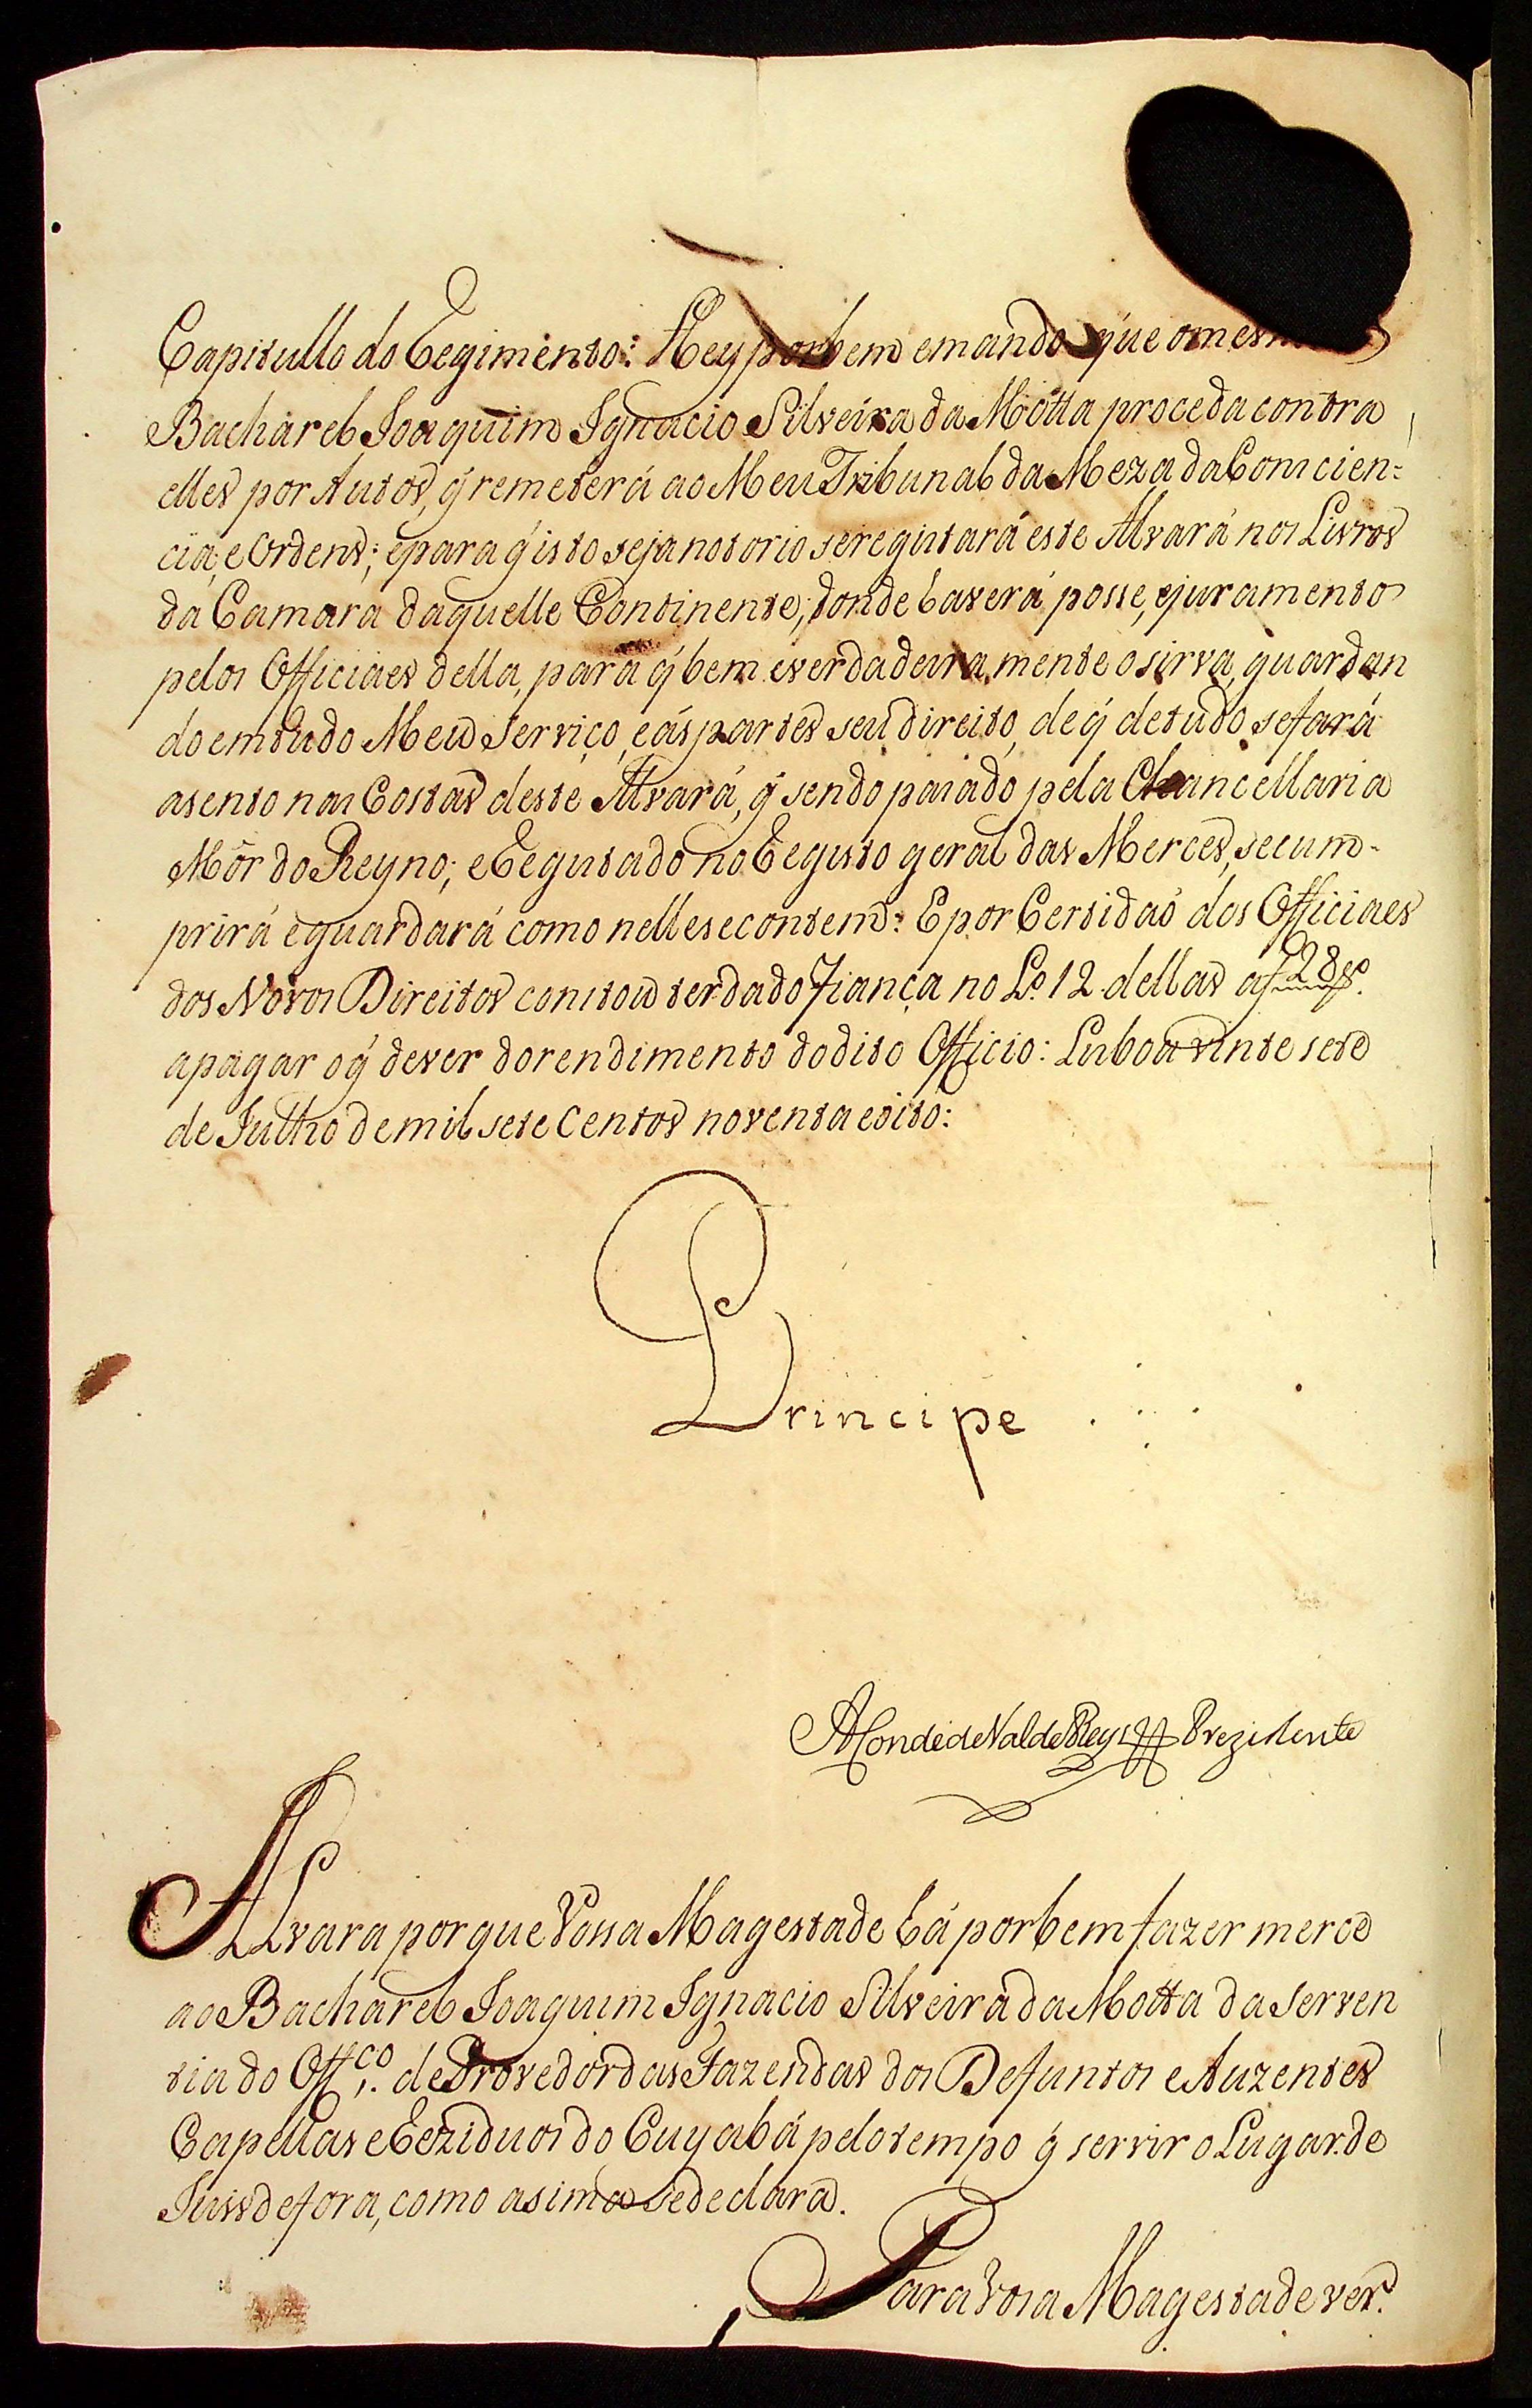 Capitullo do Regimento: Hey por bem e mando que o mesmo
Bacharel Joaquim Ignacio Silveira da Motta proceda contra
elles por Autos, q̃ remeterá ao Meu Tribunal da Meza da Concien=
cia, e Ordens; e para q̃ isto seja notorio se registará este Alvará nos Livros
da Camara daquelle Continente, donde haverá posse, e juramento
pelos Officiaes della, para q̃ bem e verdadeira mente o sirva, guardan
do em tudo Meu Serviço, e ás partes seu direito, de q̃ de tudo se fará
asento nas Costas deste Alvará, q̃ sendo pasado pela Chancellaria
Mór do Reyno; e Registado no Registo geral das Merces, se cum-
prirá e guardará como nelle se contem: E por Certidaõ dos Officiaes
dos Novos Direitos constou ter dado Fiança no L.º 12 dellas a f 128 vº.
a pagar o q̃ dever do rendimento do dito Officio: Lisboa vinte sete
de Julho de mil sete Centos noventa e oito:
Principe
Conde de Val de Reys Prezidente
Alvara por que Vossa Magestade há por bem fazer merce
ao Bacharel Joaquim Ignacio Silveira da Motta da Serven
tia do Off.co de Provedor das Fazendas dos Defuntos e Auzentes
Capellas e Reziduos do Cuyabá pelo tempo q̃ servir o Lugar de
Juis de fora, como asima se declara.
Para Vosa Magestade ver.